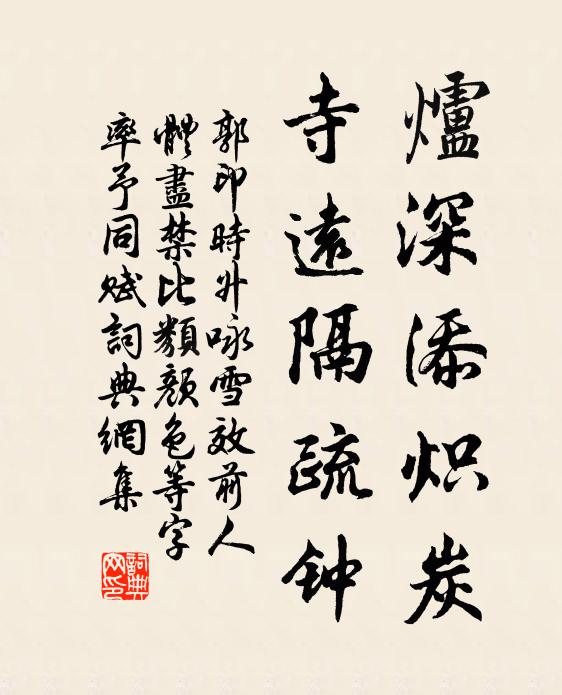 爐深添炽炭
寺遠隔疏钟
郭印時升咏雪效前人
體盡禁比類顏色等字
率予同賦詞典網集
詞典
网印